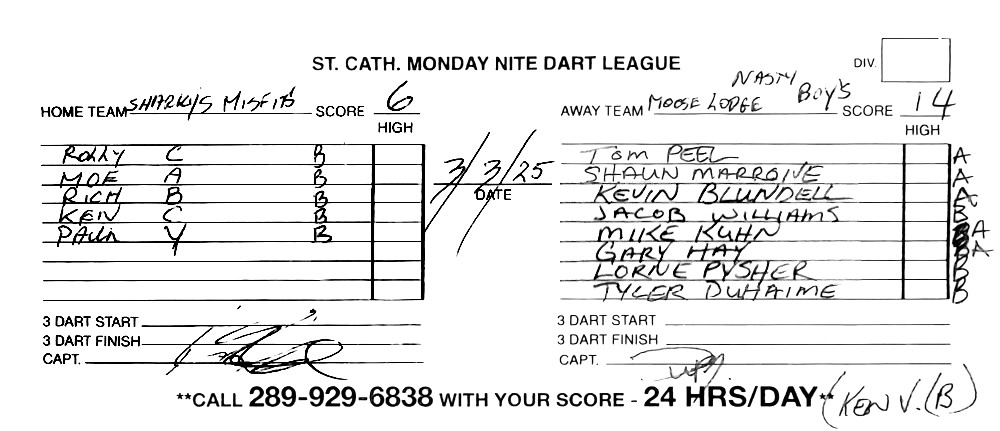 ST. CATH. MONDAY NITE DART LEAGUE
DIV.
HOME TEAM SHARKY'S MISFITS SCORE 6
HIGH
AWAY TEAM MOOSE LODGE NASTY BOY'S SCORE 14
HIGH
ROLLY C B
MOE A B
RICH B B
KEN C B
PAUL V B
3/3/25
DATE
TOM PEEL A
SHAUN MARROINE A
KEVIN BLUNDELL A
JACOB WILLIAMS B
MIKE KUHN A
GARY HAY A
LORNE PYSHER B
TYLER DUHAIME B
3 DART START
3 DART FINISH
CAPT.
3 DART START
3 DART FINISH
CAPT.
**CALL 289-929-6838 WITH YOUR SCORE - 24 HRS/DAY**
(KEN V. (B)